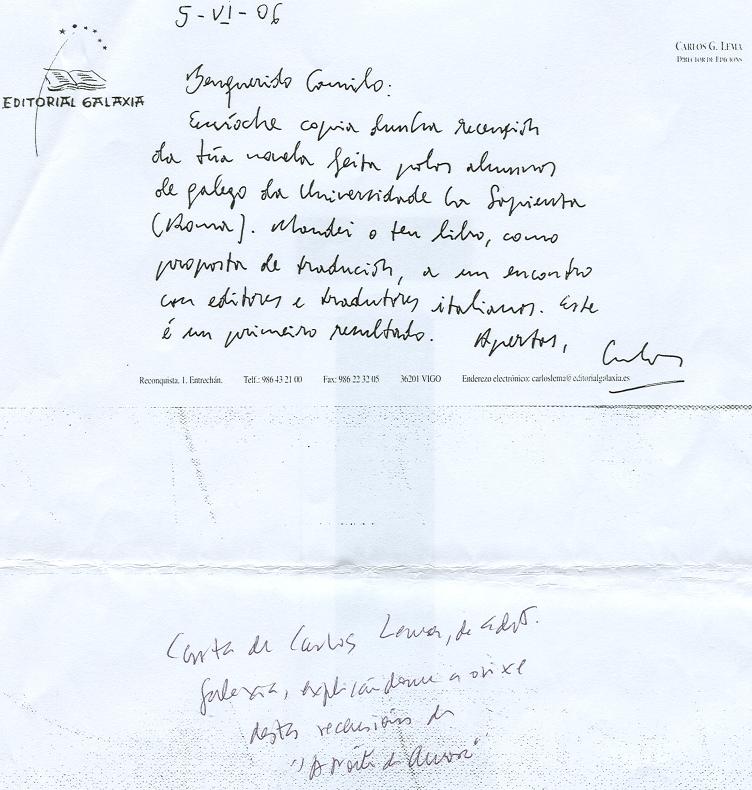 5-VI-06
EDITORIAL GALAXIA
CARLOS G. LEMA
DIRECTOR DE EDICIONS
Benquerido Camilo:
Envíoche copia dunha recensión
da túa novela feita polos alumnos
de galego da Universidade La Sapienza
(Roma). Mandei o teu libro, como
proposta de tradución, a un encontro
con editores e tradutores italianos. Este
é un primeiro resultado. Apertas,
Carlos
Reconquista, 1. Entrechán. Telf.: 986 43 21 00 Fax: 986 22 32 05 36201 VIGO Enderezo electrónico: carloslema@editorialgalaxia.es
Carta de Carlos Lema, de edit.
Galaxia, explicándome a orixe
destas recensións de
"A Noite da